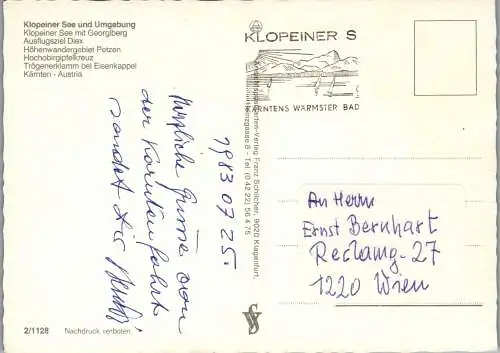 Klopeiner See und Umgebung
Klopeiner See mit Georgiberg
Ausflugsziel Diex
Höhenwandergebiet Petzen
Hochobirgipfelkreuz
Trögenerklamm bei Eisenkappel
Kärnten - Austria
KLOPEINER S
KÄRNTENS WÄRMSTER BAD
1983 07 25.
Herzliche Grüße von
der Kärntenfahrt
sendet Dir
Ansichtskarten-Verlag Franz Schilcher, 9020 Klagenfurt,
gasse 8 - Tel. (0 42 22) 56 4 75
An Herrn
Ernst Bernhart
Reclamg-27
1220 Wien
2/1128
Nachdruck verboten.